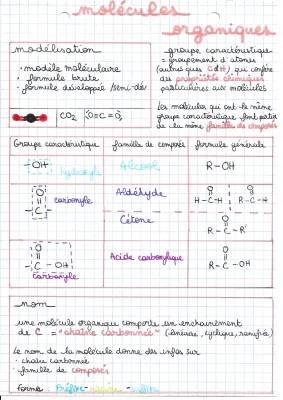 molécules
organiques
modélisation
• modèle moléculaire
• formule brute
• formule développée/semi-dév
CO₂ O=C=O
groupe caractéristique
= groupement d'atomes
(autres que C et H) qui confère
des propriétés chimiques
particulières aux molécules
Les molécules qui ont le même
groupe caractéristique font partie
de la même famille de composés
Groupe caractéristique famille de composés formule générale
-OH hydroxyle Alcool R-OH
O
-C- carbonyle Aldéhyde H-C-H R-C-H
Cétone R-C-R'
O
-C-OH carboxyle Acide carboxylique R-C-OH
nom
une molécule organique comporte un enchaînement
de C = "chaîne carbonnée" (linéaire, cyclique, ramifiée)
Le nom de la molécule donne des infos sur
• chaîne carbonnée
• famille de composés
forme : Préfixe-racine-suffixe